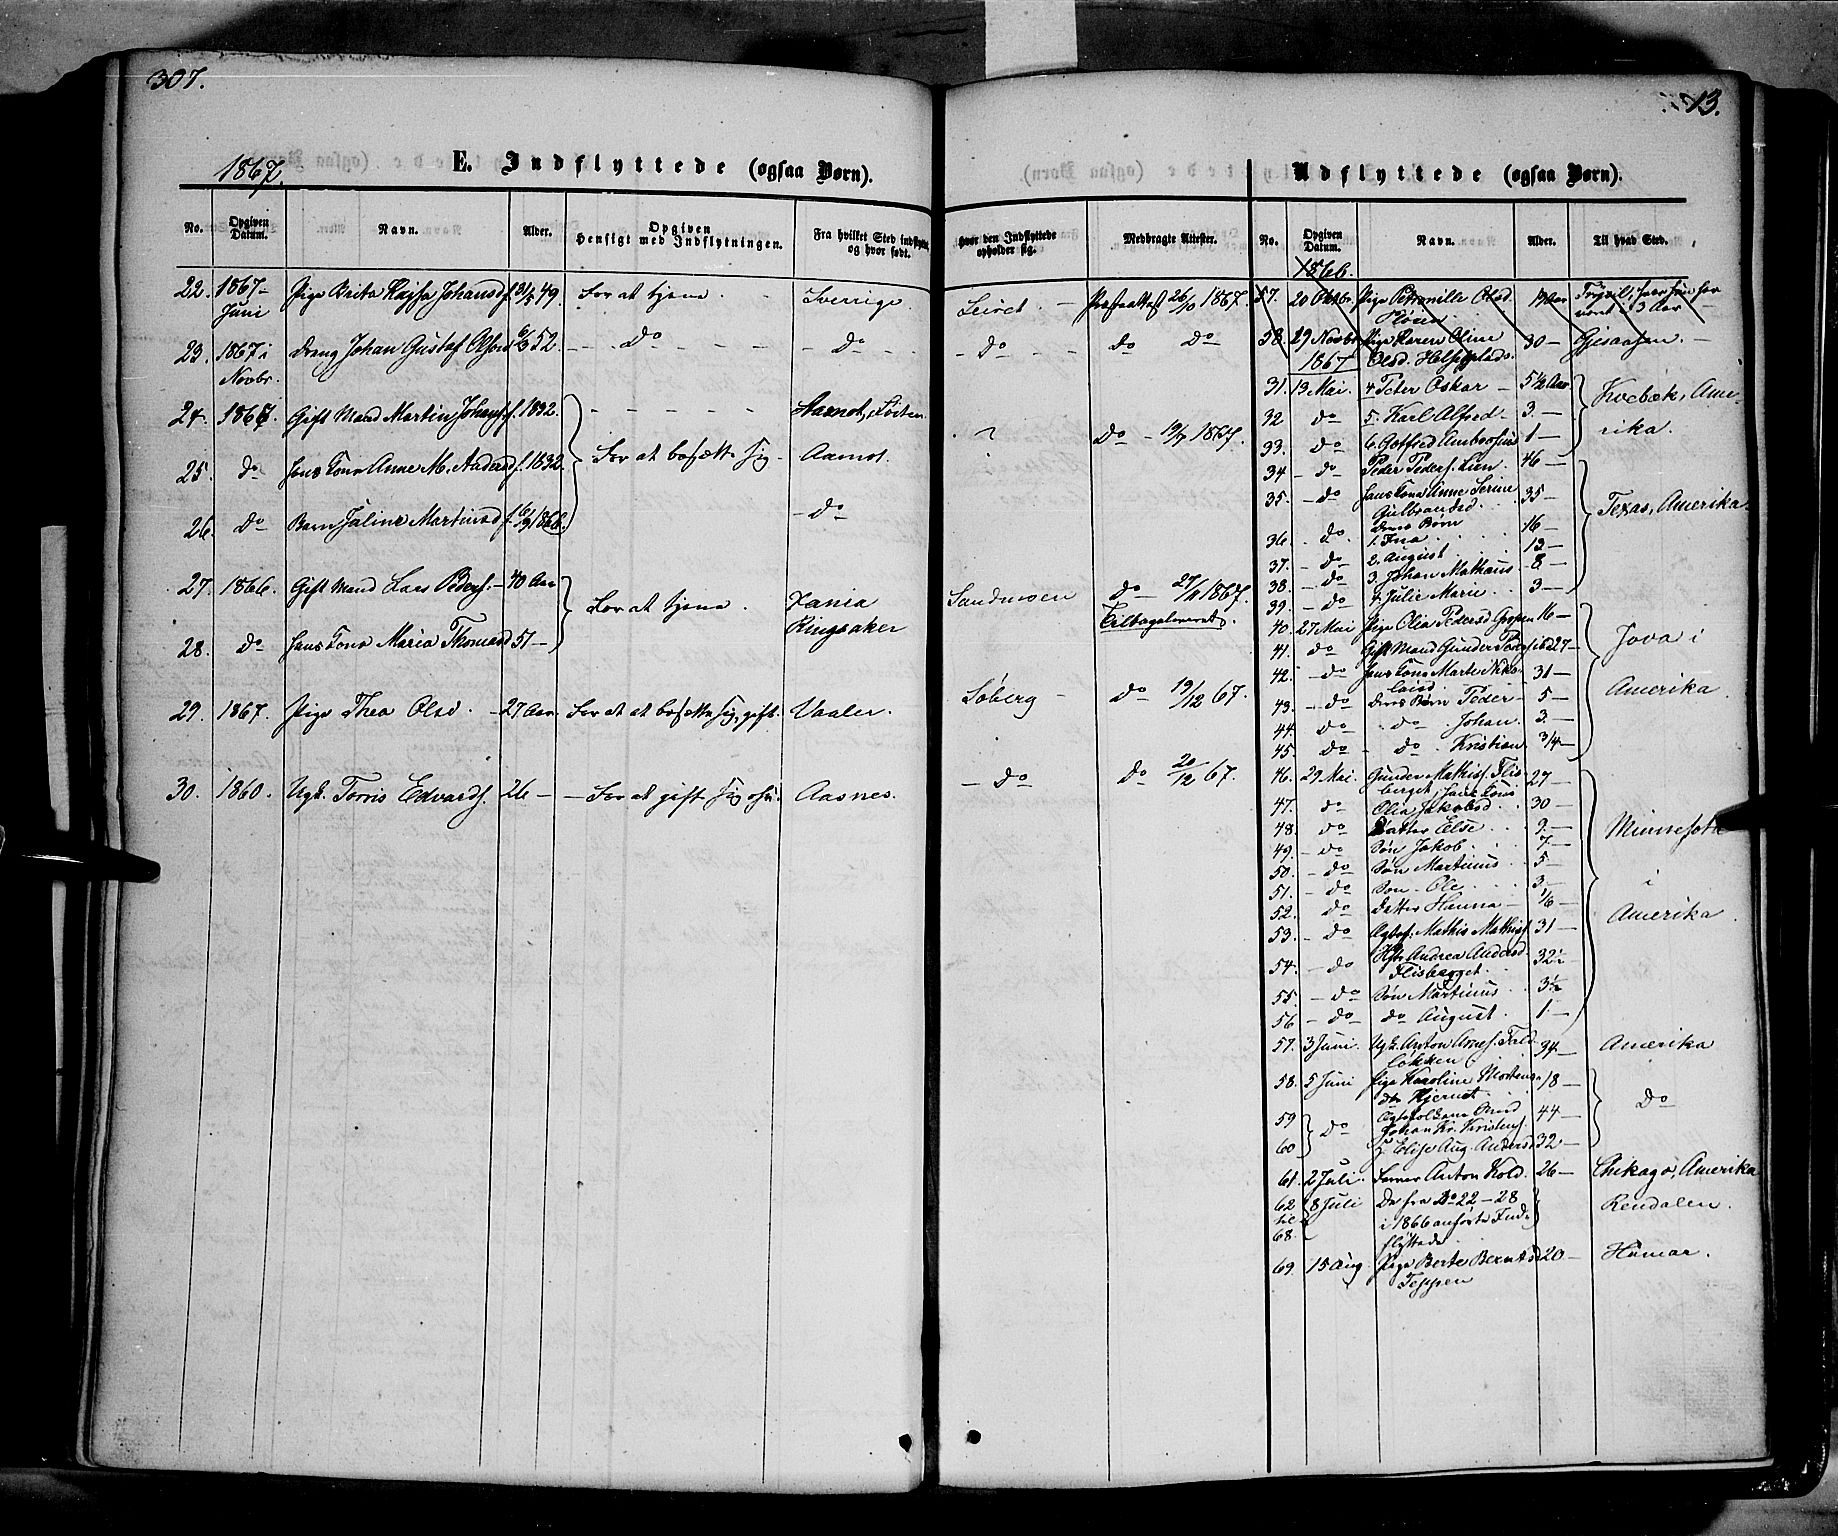 307.
13.
1867.
E. Indflyttede (ogsaa Børn).
No. Opgiven Datum. Navn. Alder. Opgiven Hensigt med Indflytningen. Fra hvilket Sted indflyttet og hvor født. Hvor den Indflyttede opholder sig. Medbragte Attester.
22. 1867 Juni Pige Brita Kajsa Johansd. f. 31/5 49. For at tjene Sverrige Leiret Præsteattest 26/10 1867.
23. 1867 i Novbr. Dreng Johan Gustaf Olsen 6/3 52. Do Do Do Do Do
24. 1867. Gift Mand Martin Johans. f. 1832. Aamot, Løiten Do 19/7 1867.
25. do Hans Kone Anne M. Andersd. f. 1832. For at bosætte sig Aamot.
26. Do Barn Juline Martinsd. f. 6/9 1866. Do
27. 1866. Gift Mand Lars Peders. 40 Aar For at tjene. Vania Sandmoen Do 27/11 1867.
Ringsaker Tilbageleveret.
28. do Hans Kone Maria Thomasd 51
29. 1867. Pige Thea Olsd. 27 Aar For at at bosætte sig, gift. Vaaler. Søberg Do 19/12 67.
30. 1860. Ugk. Torris Edvards. 26 For at gifte sig Aasnes. Do Do 20/12 67.
Udflyttede (ogsaa Børn).
No. Opgiven Datum. Navn. Alder. Til hvad Sted.
1866.
57. 20 Oktbr. Pige Petronille Olsd. Trysil, hvor hun har
været i 3 Aar
58. 29 Novbr. Pige Karen Oline 30 Gjesaasen.
1867 Olsd.
31. 13 Mai. 4 Peter Oskar 5 1/2 Aar Koebæk, Ame-
32 do 5. Karl Alfred 3. rika.
33. do 6. Gotfred Ambrosius 1
34 do Peder Peders. Lien. 46
35. do Hans Kone Anne Serine 35 Texas, Amerika
Gulbrandsd.
Deres Børn
36. do. 1. Ina 16
37. do 2. August 13
38. do 3. Johan Mathæus 8
39. do 4 Julie Marie 3
40. 27 Mai Pige Olia Pedersd 16
41. do Gift Mand Gunder 27 Jova i
42. do Hans Kone Marte Niko- 31 Amerika.
laisd.
43. do Deres Børn Peder 5
44. do do Johan 3.
45. do do Kristian 3/4
46. 29 Mai. Gunder Mathiss. Flis- 27
berget, Hans Kone
47. do Olia Jakobsd. 30
48. do Datter Else 9. Minnesota
49. do Søn Jakob 7.
50. do Søn Martinus 5
51. do Søn Ole 3 i
52. do Datter Hanna 1/6 Amerika.
53. do Mathis Mathiss. 31
54. do Andrea Andersd. 32 1/2
Flisberget.
55. do Søn Martinus 3 1/2
56 do do August 1.
57. 3 Juni. Ugk. Anton Arnes. 34 Amerika
løkken
58. 5 Juni Pige Karoline Mortens- 18
dtr Hjernet
59 do 44 Do
Johan Kr. Kristens.
60 Elise Aug. Andersd 32
61. 2 Juli Anton Kold 26 Chikago, Amerika
62 8 Juli De fra No 22 – 28 Rendalen.
til i 1866 anførte Ind-
68. flyttede.
69. 15 Aug. Pige Berte Berntsd 20 Hamar.
Teppen